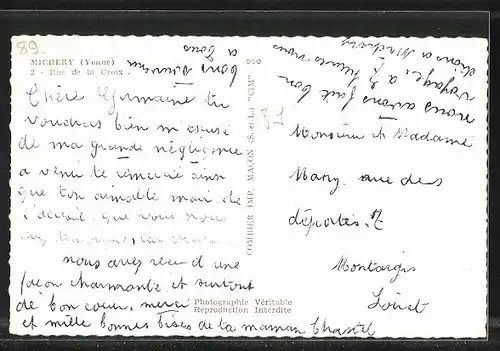 89.
MICHERY (Yonne)
2 - Rue de la Croix
Chère Germaine tu
voudras bien m'escusé
de ma grande négligence
a venir te remercié ainsi
que ton aimable mari de
l'accueil que vous nous
avez
nous avez recu d'une
façon charmante et surtout
de bon coeur, merci
et mille bonnes bises de la maman Chastel
nous avons fait bon
voyage, a 7 heures nous
étions a Michery
bons
a tous
COMBIER IMP. MACON (S.-et-L.) "CIM"
89
Monsieur et Madame
Mary rue des
déportés 7
Montargis
Loiret
Photographie Véritable
Reproduction Interdite